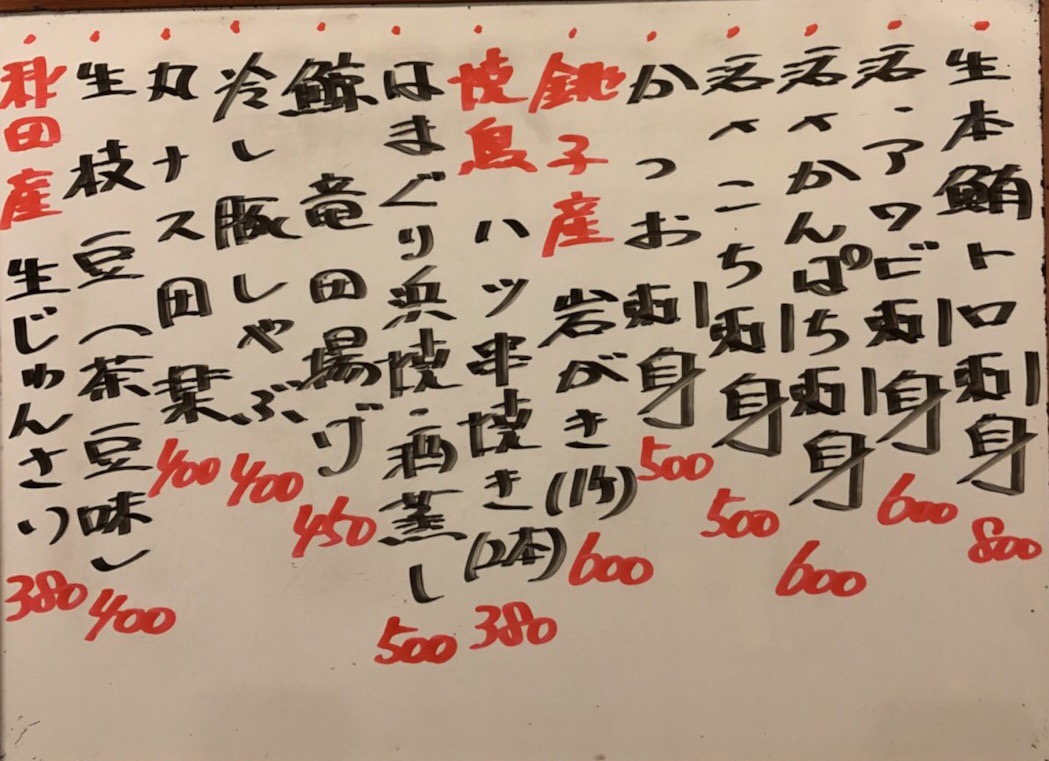 生本鮪トロ刺身 800
活・アワビ刺身 600
活〆かんぱち刺身 600
活〆こち刺身 500
かつお刺身 500
銚子産 岩がき(1ケ) 600
焼鳥 ハツ串焼き(2本) 380
はまぐり浜焼・酒蒸し 500
鯨竜田揚げ 450
冷し豚しゃぶ 400
丸ナス田楽 400
生枝豆(茶豆味) 400
秋田産 生じゅんさい 380